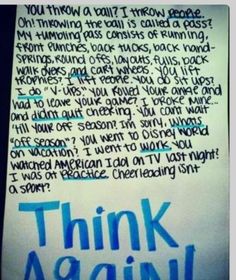 You throw a ball? I throw people.
Oh! Throwing the ball is called a pass?
My tumbling pass consists of running,
front punches, back tucks, back hand-
springs, round offs, layouts, fulls, back
walkovers, and cartwheels. You lift
trophies? I lift people. You do sit ups?
I do "V-ups." You rolled your ankle and
had to leave your game? I broke mine...
and didn't quit cheering. You can't wait
'till your off season? I'm sorry, whats
"off season"? You went to Disney World
on vacation? I went to work. You
watched AMERICAN Idol on TV last night?
I was at practice. Cheerleading isn't
a sport?
Think
Again!